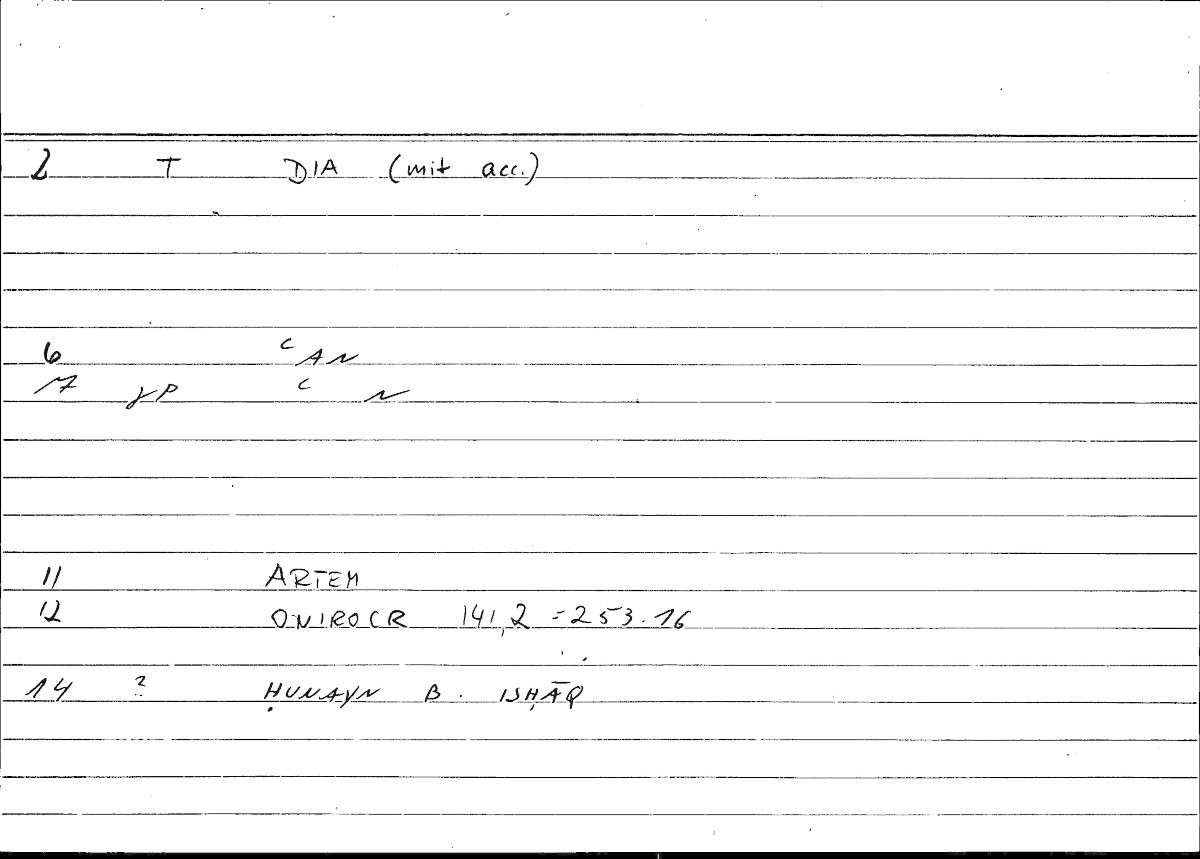 2 T DIA (mit acc.)
6 ʿAN
ʿ N
11 ARTEM
12 ONIROCR 141,2 = 253.16
14 ? ḤUNAYN B. ISḤĀQ